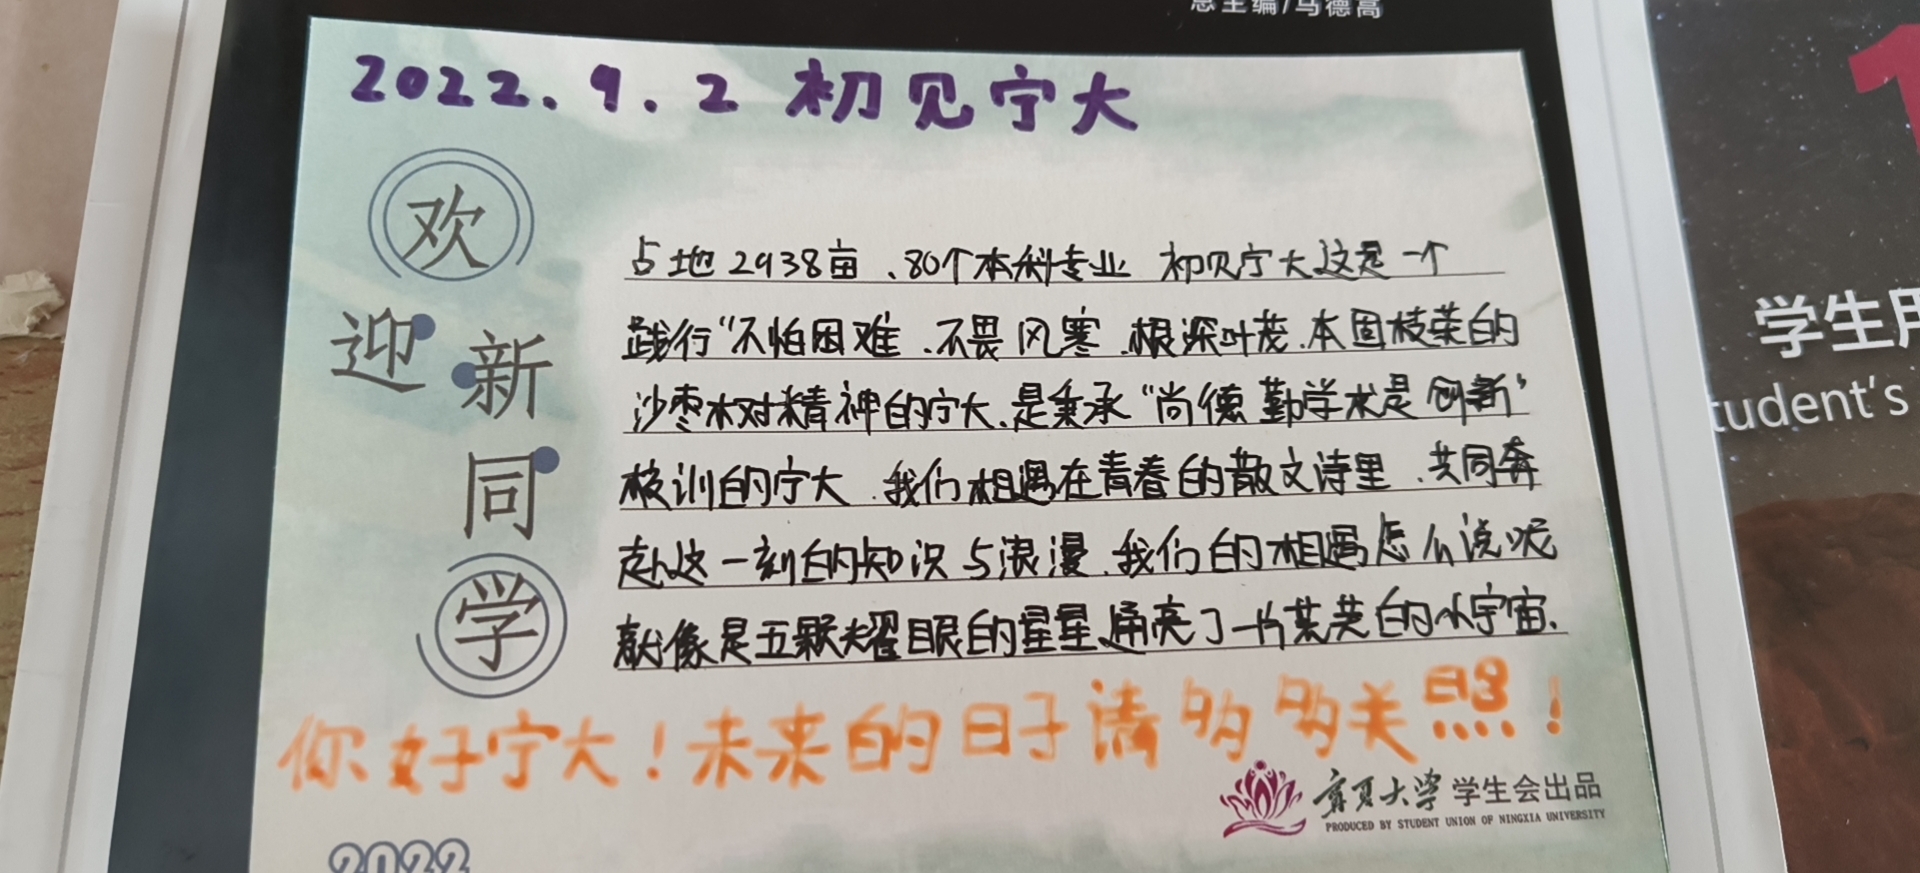 总主编/马德高
2022.9.2 初见宁大
欢迎新同学
占地2938亩、80个本科专业 初见宁大这是一个
践行“不怕困难、不畏风寒、根深叶茂、本固枝荣的
沙枣树对精神的宁大、是秉承“尚德 勤学 求是 创新”
校训的宁大、我们相遇在青春的散文诗里、共同奔
赴这一刻的知识与浪漫、我们的相遇怎么说呢
就像是五颗耀眼的星星、涌亮了一片荧荧的小宇宙、
你好宁大！未来的日子请多多关照！
宁夏大学 学生会出品
PRODUCED BY STUDENT UNION OF NINGXIA UNIVERSITY
2022
学生用
tudent's